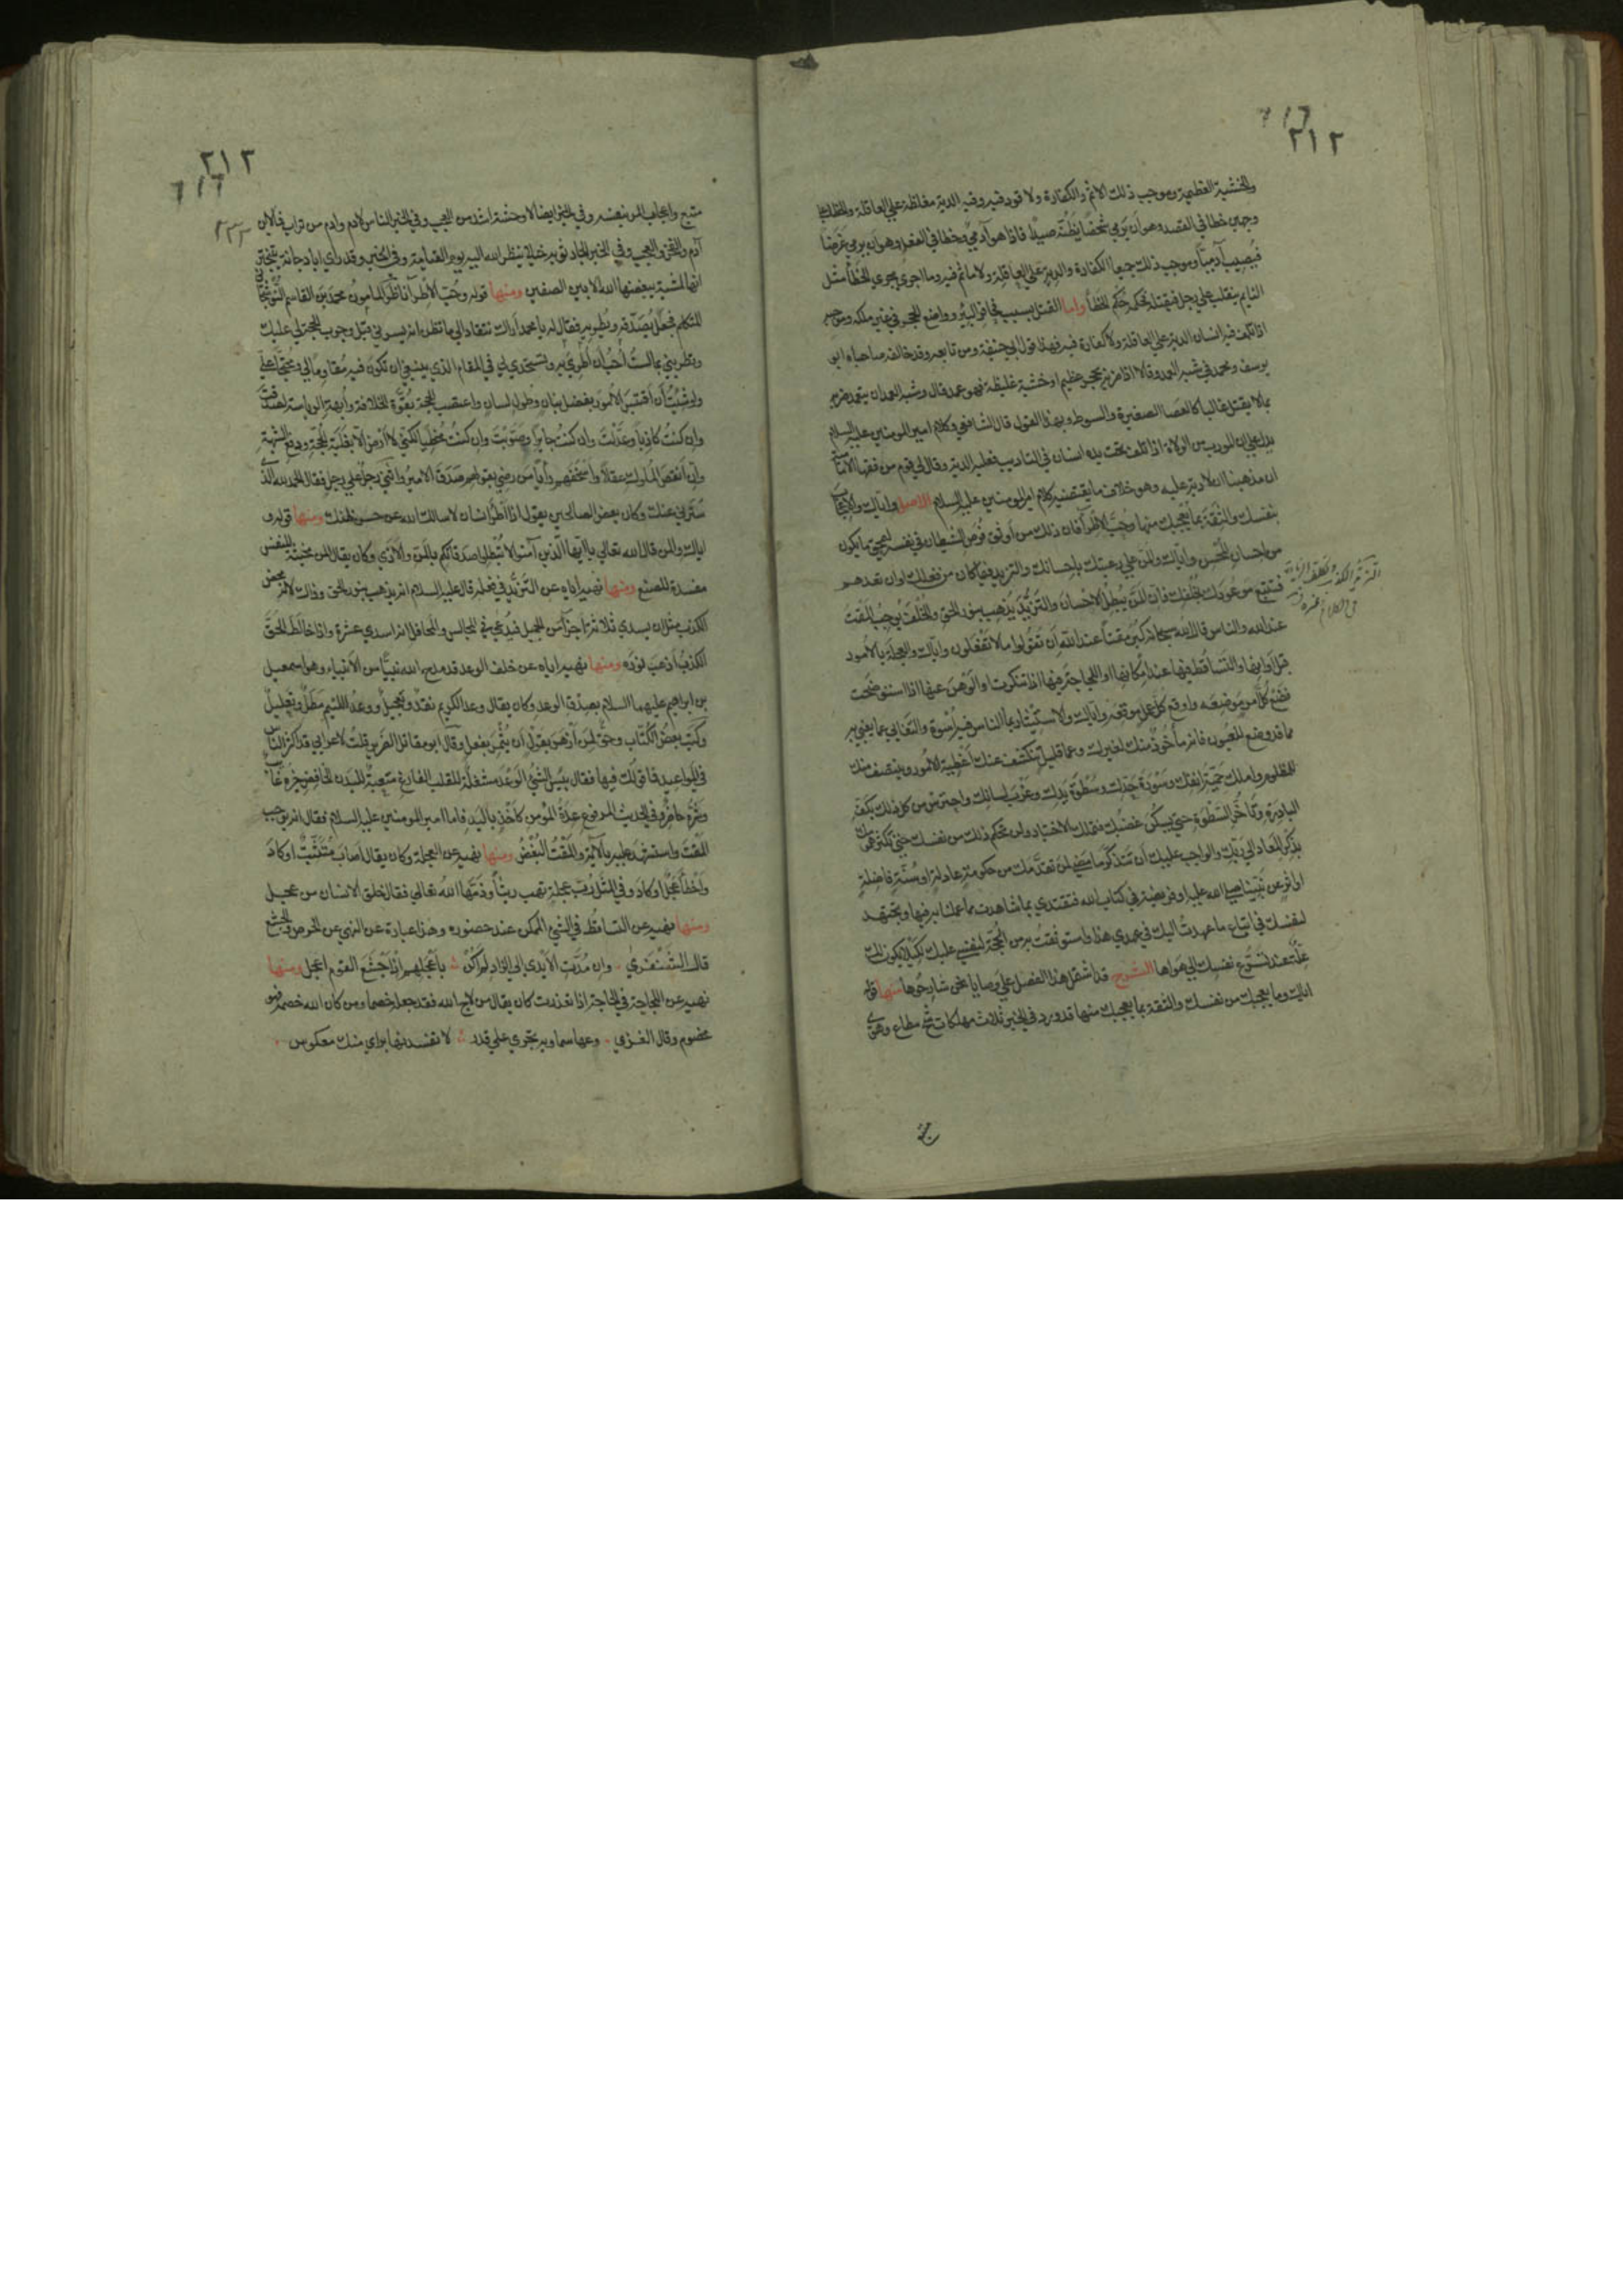 ٢١٢
والخشبة العظيمة وموجب ذلك الاثم والكفارة ولا قود فيه وفيه الدية مغلظة علي العاقلة والخطا علي
وجهين خطا في القصد وهو ان يرمي شخصًا يظنّه صيدًا فاذا هو آدميّ وخطا في الفعل وهو ان يرمي غرضا
فيصيب آدميّا وموجب ذلك جميعا الكفارة والدية علي العاقلة ولا ماثم فيه وما اجري مجري الخطأ مثل
النايم ينقلب علي رجل فيقتله فحكمه حكم الخطأ واما القتل بسبب فحافر البئر وواضع الحجر في غير ملكه وموجبه
اذا تلف فيه انسان الدية علي العاقلة ولا كفارة فيه فهذا قول ابي حنيفة ومن تابعه وقد خالفه صاحباه ابو
يوسف ومحمد في شبه العمد وقالا اذا ضربه بحجر عظيم او خشبة غليظة فهو عمد قال وشبه العمد ان يتعمد ضربه
بما لا يقتل غالبا كالعصا الصغيرة والسوط وبهذا القول قال الشافعي وكلام امير المومنين عليه السلام
يدل علي ان المودب من الولاة اذا تلف تحت يده انسان في التاديب فعليه الدية وقال لي قوم من فقهاء الامامية
ان مذهبنا ان لا دية عليه وهو خلاف ما يقتضيه كلام امير المومنين عليه السلام الاصل واياك والاعجاب
بنفسك والثقة بما يعجبك منها وحبّ الاطرآ فان ذلك من اوثق فرص الشيطان في نفسه ليمحق ما يكون
من احسان المحسن واياك والمنّ علي رعيتك باحسانك والتزيد فيما كان من فعلك او ان تعدهم
فتتبع موعودك بخلفك فان المنّ يبطل الاحسان والتزيّد يذهب بنور الحق والخلف يوجب المقت
عند الله والناس قال الله سبحانه كبر مقتا عند الله ان تقولوا ما لا تفعلون واياك والعجلة بالامور
قبل اوانها والتساقط فيها عند امكانها او اللجاجة فيها اذا تنكرت والوهن عنها اذا استوضحت
فضع كل امر موضعه واوقع كل عمل موقعه واياك والاستيثار بما الناس فيه اسوة والتغابي عما يعني به
مما قد وضح للعيون فانه مأخوذ منك لغيرك وعما قليل تنكشف عنك اغطية الامور وينتصف منك
للمظلوم املك حميّة انفك وسورة حدّك وسطوة يدك وغرب لسانك واحترس من كل ذلك بكفّ
البادرة وتأخير السطوة حتي يسكن غضبك فتملك الاختيار ولن تحكم ذلك من نفسك حتي تكثر همومك
بذكر المعاد الي ربك والواجب عليك ان تتذكر ما مضي لمن تقدمك من حكومة عادلة او سنّة فاضلة
او اثر عن نبينا صلي الله عليه او فريضة في كتاب الله فتقتدي بما شاهدت مما عملنا به فيها وتجتهد
لنفسك في اتباع ما عهدت اليك في عهدي هذا واستوثقت به من الحجّة لنفسي عليك لكيلا تكون لك
علّة عند تسرّع نفسك الي هواها الشرح قد اشتمل هذا الفصل علي وصايا نحن شارحوها منها قوله
اياك وما يعجبك من نفسك والثقة بما يعجبك منها قد ورد في الخبر ثلاث مهلكات شح مطاع وهوي
٢١٣
متبع واعجاب المر بنفسه وفي الخبر ايضا لا وحشة اشد من العجب وفي الخبر الناس لادم وادم من تراب فما لابن
آدم والفخر والعجب وفي الخبر الجار ثوبه خيلا لا ينظر الله اليه يوم القيامة وفي الخبر وقد راي ابا دجانة يتبختر
انها لمشية يبغضها الله الا بين الصفين ومنها قوله وحبّ الاطرآ ناظر المامون محمد بن القاسم النوشجاني
المتكلم فجعل يصدّقه ويطريه فقال له يا محمد اراك تنقاد الي ما تظن انه يسرني قبل وجوب الحجة لي عليك
وتطريني بما لست احب ان اطري به وتستخذي لي في المقام الذي ينبغي ان تكون فيه مقاوما لي ومحتجا علي
ولو شئت ان اقتسر الامور بفضل بيان وطول لسان واغتصب الحجة بقوّة الخلافة وابهة الرياسة لصدقت
وان كنت كاذبا وعدّلت وان كنت جايرا وصوّبت وان كنت مخطيا لكنّي لا ارضي الا بغلبة الحجة ودفع الشبهة
وان انقص الملوك عقلا واسخفهم رأيا من رضي بقولهم صدق الامير واثني رجل علي رجل فقال الحمد لله الذي
سترني عنك وكان بعض الصالحين يقول اذا اطراه انسان لاسالك الله عن حسن ظنك ومنها قوله و
اياك والمن قال الله تعالي يا ايها الذين آمنوا لا تبطلوا صدقاتكم بالمن والاذي وكان يقال المن محبة للنفس
مفسدة للصنع ومنها نهيه اياه عن التزيّد في فعله قال عليه السلام انه يذهب بنور الحق وذلك لانه محض
الكذب مثل ان يسدي ثلاثة اجزآ من الجميل فيدعي في المجالس والمحافل انه اسدي عشرة واذا خالط الحق
الكذب اذهب نوره ومنها نهيه اياه عن خلف الوعد قد مدح الله نبيّا من الانبياء وهو اسمعيل
بن ابراهيم عليهما السلام بصدق الوعد وكان يقال وعد الكريم نقد وتعجيل ووعد اللئيم مطل وتعليل
وكتب بعض الكتّاب وحق لمن ازهر بقول ان يثمر بفعل وقال ابو مقاتل الضرير قلت لاعرابي قد اكثر الناس
في المواعيد فما قولك فيها فقال بيس الشيء الوعد مشغلة للقلب الفارغ متعبة للبدن الخافض خيره غايب
وشره حاضر وفي الحديث المرفوع عدة المؤمن كاخذ باليد فاما امير المومنين عليه السلام فقال انه يوجب
المقت واستشهد عليه بالآية والمقت البغض ومنها نهيه عن العجلة وكان يقال اصاب متثبّت او كاد
واخطأ عجل او كاد وفي المثل ربّ عجلة تهب ريثا وذمها الله تعالي فقال خلق الانسان من عجل
ومنها نهيه عن التساقط في الشيء الممكن عند حضوره وهذا عبارة عن النهي عن الحرص والجشع
قال الشنفري وان مدّت الايدي الي الزاد لم اكن باعجلهم اذ اجشع القوم اعجل ومنها
نهيه عن اللجاجة في الحاجة اذا تعذرت كان يقال من لاج الله فقد جعله خصما ومن كان الله خصمه فهو
مخصوم وقال الغزي دعها سماوية تجري علي قدر لا تفسدنها براي منك معكوس